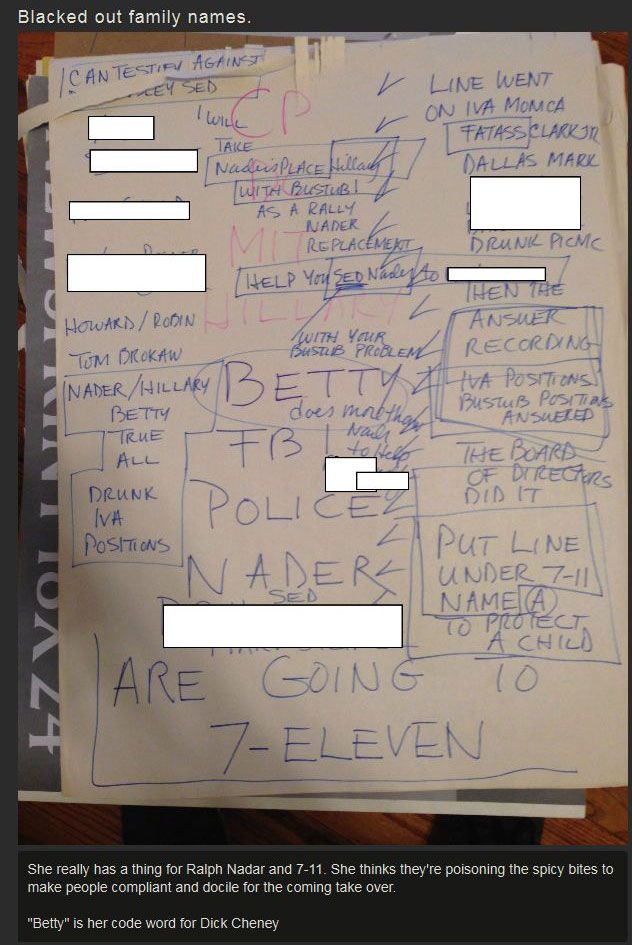 Blacked out family names.
I CAN TESTIFY AGAINST
SED
I WILL
CP
TAKE
Nader's PLACE Hillary
WITH BUSTUB!
AS A RALLY
NADER
MIT
REPLACEMENT
HELP YOU SED Nader to
HILLARY
HOWARD / ROBIN
WITH YOUR
BUSTUB PROBLEM
TOM BROKAW
NADER/HILLARY
BETTY
BETTY
does more than
to Help
TRUE
ALL
FBI
DRUNK
IVA
POSITIONS
POLICE
NADER
SED
LINE WENT
ON IVA MOMICA
FATASS CLARK JR
DALLAS MARK
DRUNK PICMC
THEN THE
ANSWER
RECORDING
IVA POSITIONS
BUSTUB POSITIONS
ANSWERED
THE BOARD
OF DIRECTORS
DID IT
PUT LINE
UNDER 7-11
NAME A
TO PROTECT
A CHILD
ARE GOING TO
7-ELEVEN
She really has a thing for Ralph Nadar and 7-11. She thinks they're poisoning the spicy bites to
make people compliant and docile for the coming take over.
"Betty" is her code word for Dick Cheney